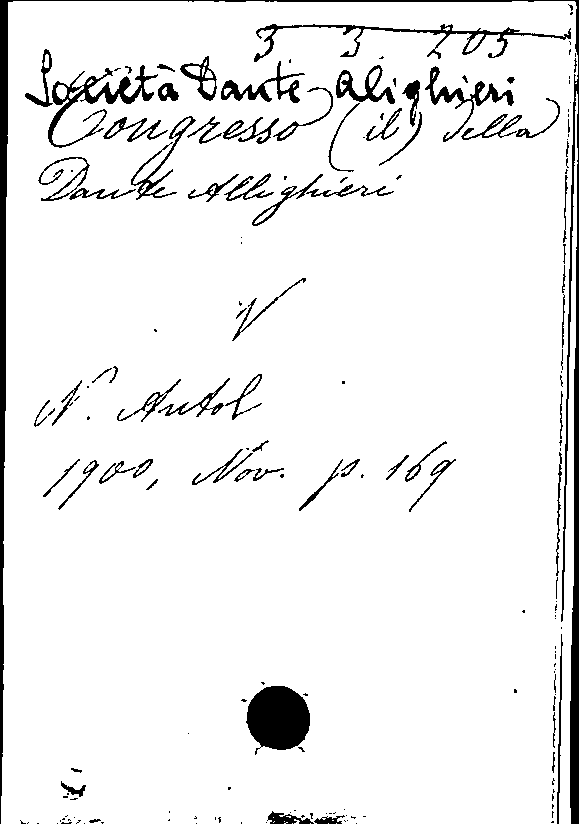 3 3 205
Società Dante Alighieri
Congresso (il) della
Dante Allighieri
V
N. Antol
1900, Nov. p. 169